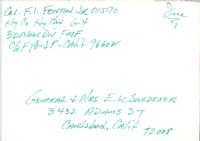 Col. F. I. Fenton Jr 015170
Hq Co Hq Bn G-4
3D Marine Div FMF
c/o FPO SF - Calif 96602
General & Mrs E. W. Snedeker
3482 Adams St
Carlsbad, Calif
92008